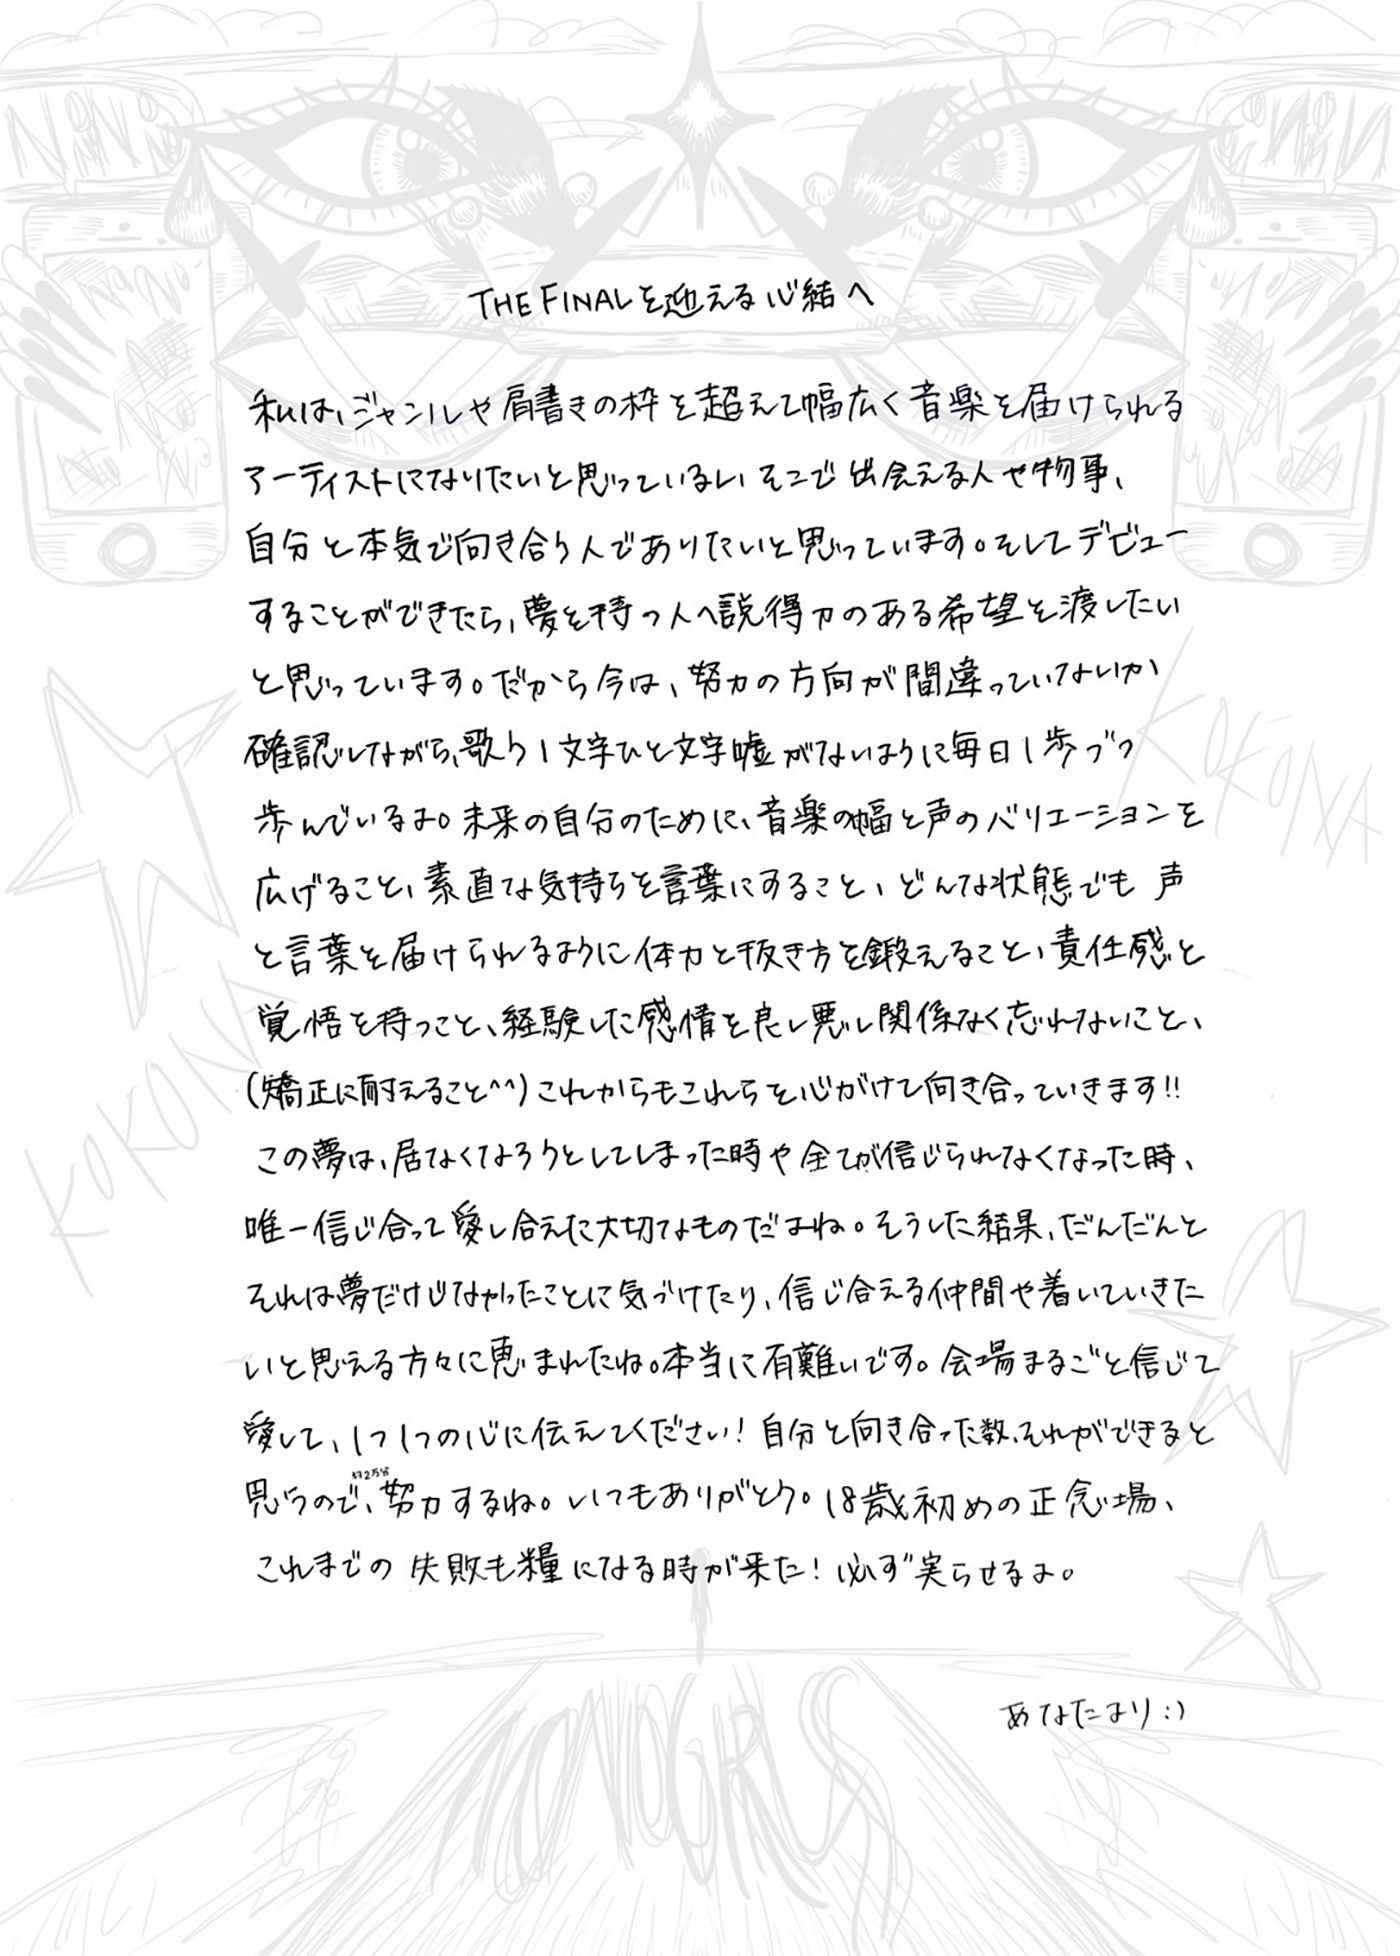 No No
GIRLS
THE FINALを迎える心結へ
私は、ジャンルや肩書きの枠を超えて幅広く音楽を届けられる
アーティストになりたいと思っているし、そこで出会える人や物事、
自分と本気で向き合う人でありたいと思っています。そしてデビュー
することができたら、夢を持つ人へ説得力のある希望を渡したい
と思っています。だから今は、努力の方向が間違っていないか
確認しながら、歌う1文字ひと文字嘘がないように毎日1歩づつ
歩んでいるよ。未来の自分のために、音楽の幅と声のバリエーションを
広げること、素直な気持ちを言葉にすること、どんな状態でも 声
と言葉を届けられるように体力と抜き方を鍛えること、責任感と
覚悟を持つこと、経験した感情を良し悪し関係なく忘れないこと、
(矯正に耐えること^^)これからもこれらを心がけて向き合っていきます!!
この夢は、居なくなろうとしてしまった時や全てが信じられなくなった時、
唯一信じ合って愛し合えた大切なものだよね。そうした結果、だんだんと
それは夢だけじなかったことに気づけたり、信じ合える仲間や着いていきた
いと思える方々に恵まれたね。本当に有難いです。会場まるごと信じて
愛して、1つ1つの心に伝えてください!自分と向き合った数、それができると
思うので、努力するね。いつもありがとう。18歳初めの正念場、
これまでの 失敗も糧になる時が来た!必ず実らせるよ。
あなたより:)
KOKONA
KOKONA
NO NO GIRLS